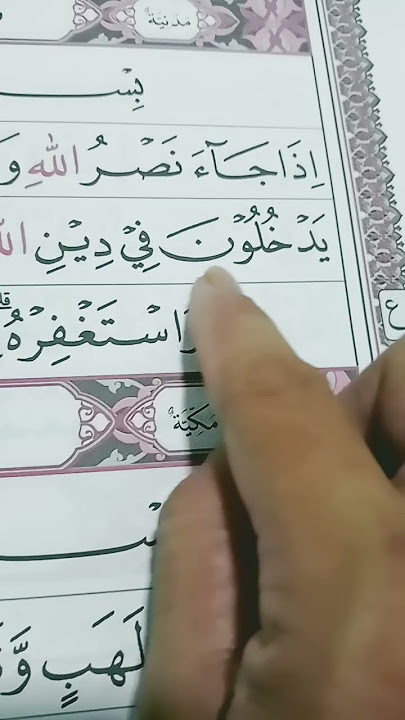 مدنية
بِسْ
اِذَا جَآءَ نَصْرُ اللّٰهِ وَ
يَدْخُلُوْنَ فِيْ دِيْنِ
اسْتَغْفِرْهُ
مَكِّيَّة
لَهَبٍ وَّ
ع